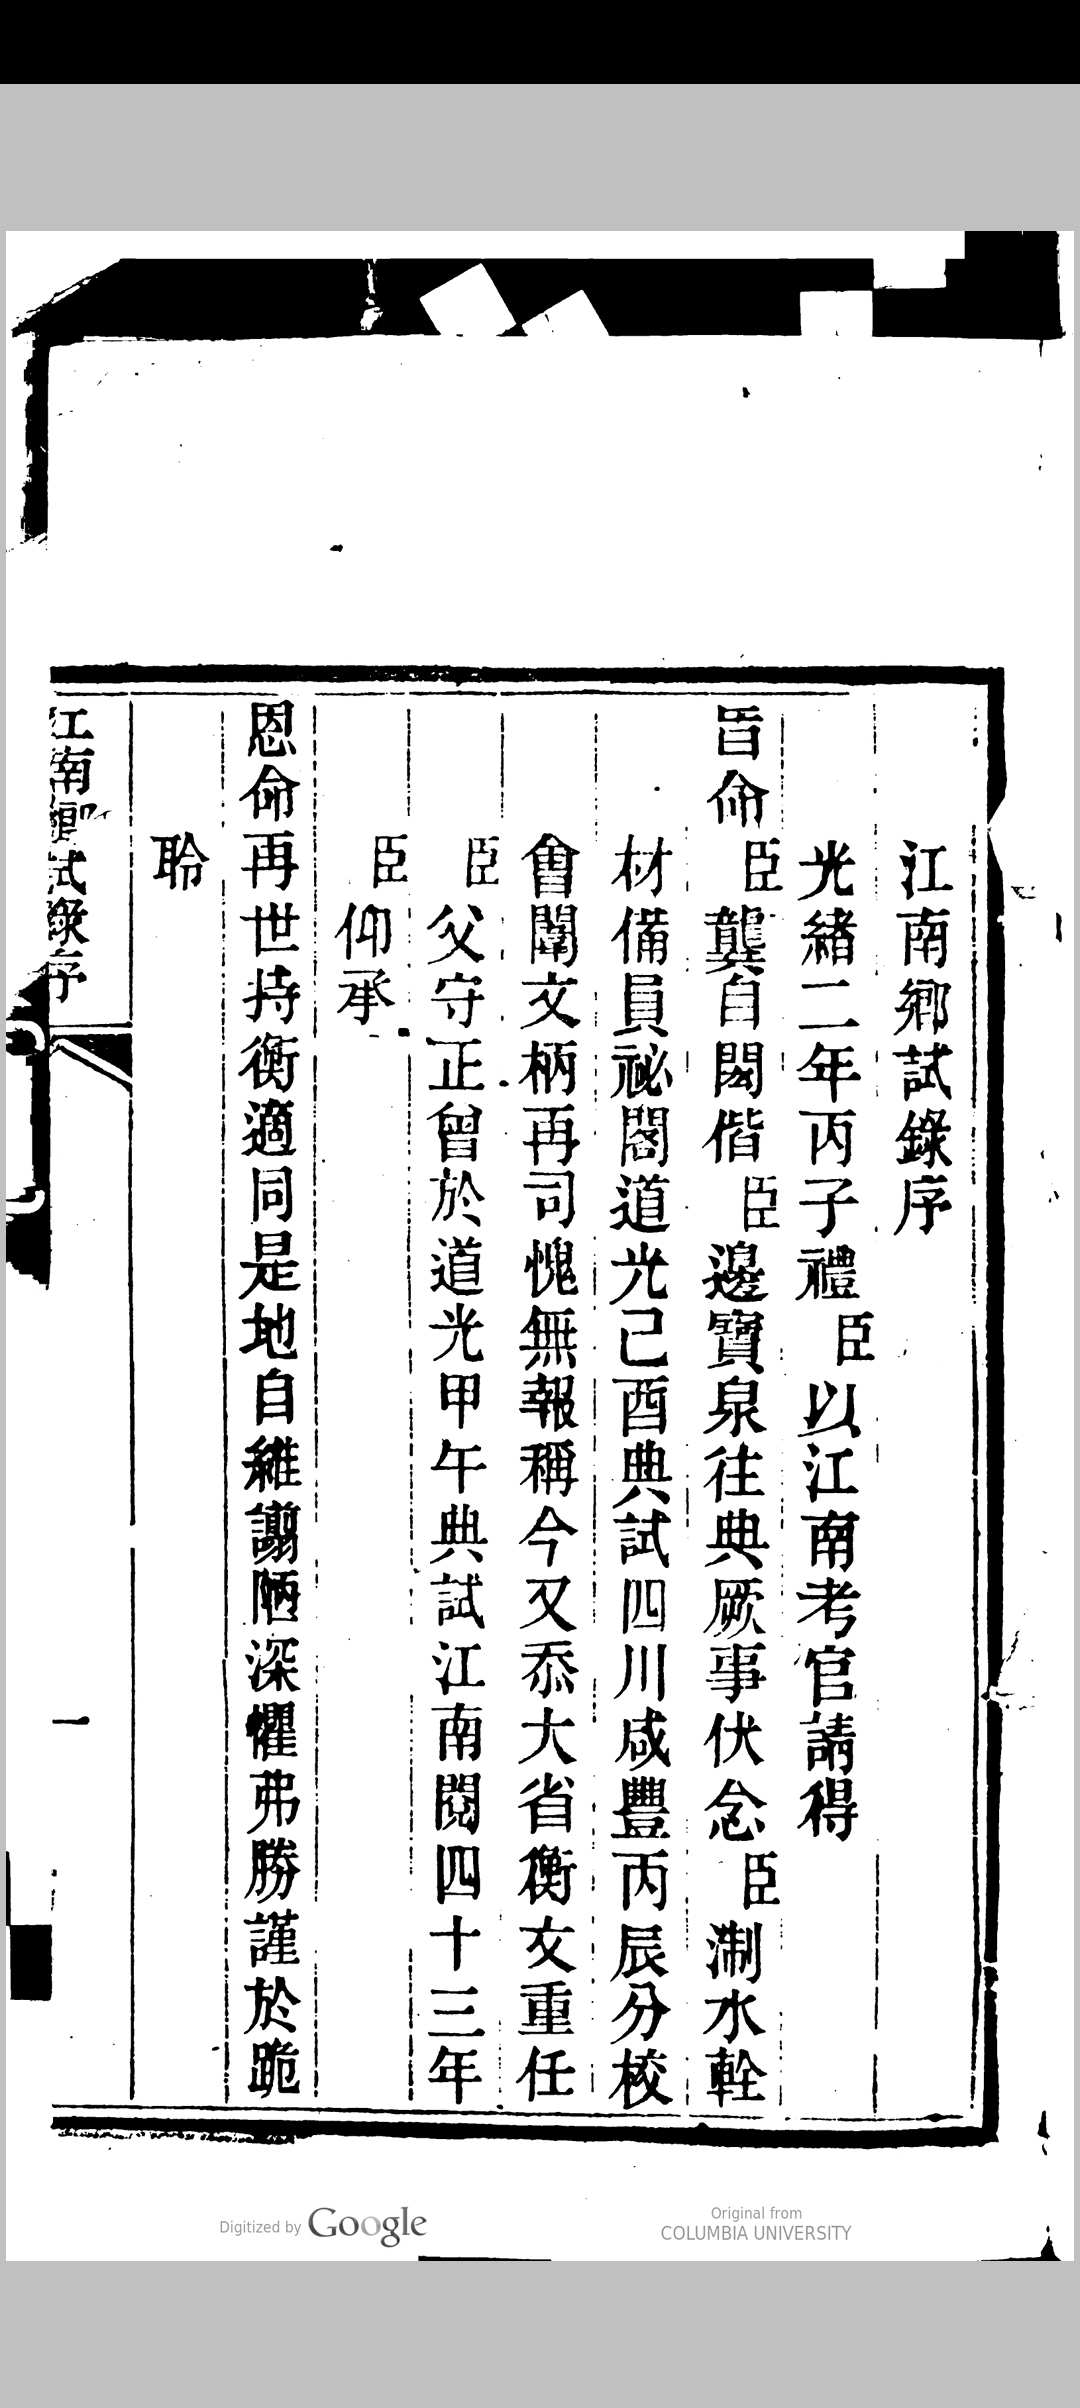 江南鄉試錄序
光緒二年丙子禮臣以江南考官請得
旨命臣龔自閎偕臣邊寶泉往典厥事伏念臣淛水輇
材備員祕閣道光己酉典試四川咸豐丙辰分校
會闈文柄再司愧無報稱今又忝大省衡文重任
臣父守正曾於道光甲午典試江南閱四十三年
臣仰承
恩命再世持衡適同是地自維謭陋深懼弗勝謹於跪
聆
江南鄉試錄序
一
Digitized by Google
Original from
COLUMBIA UNIVERSITY